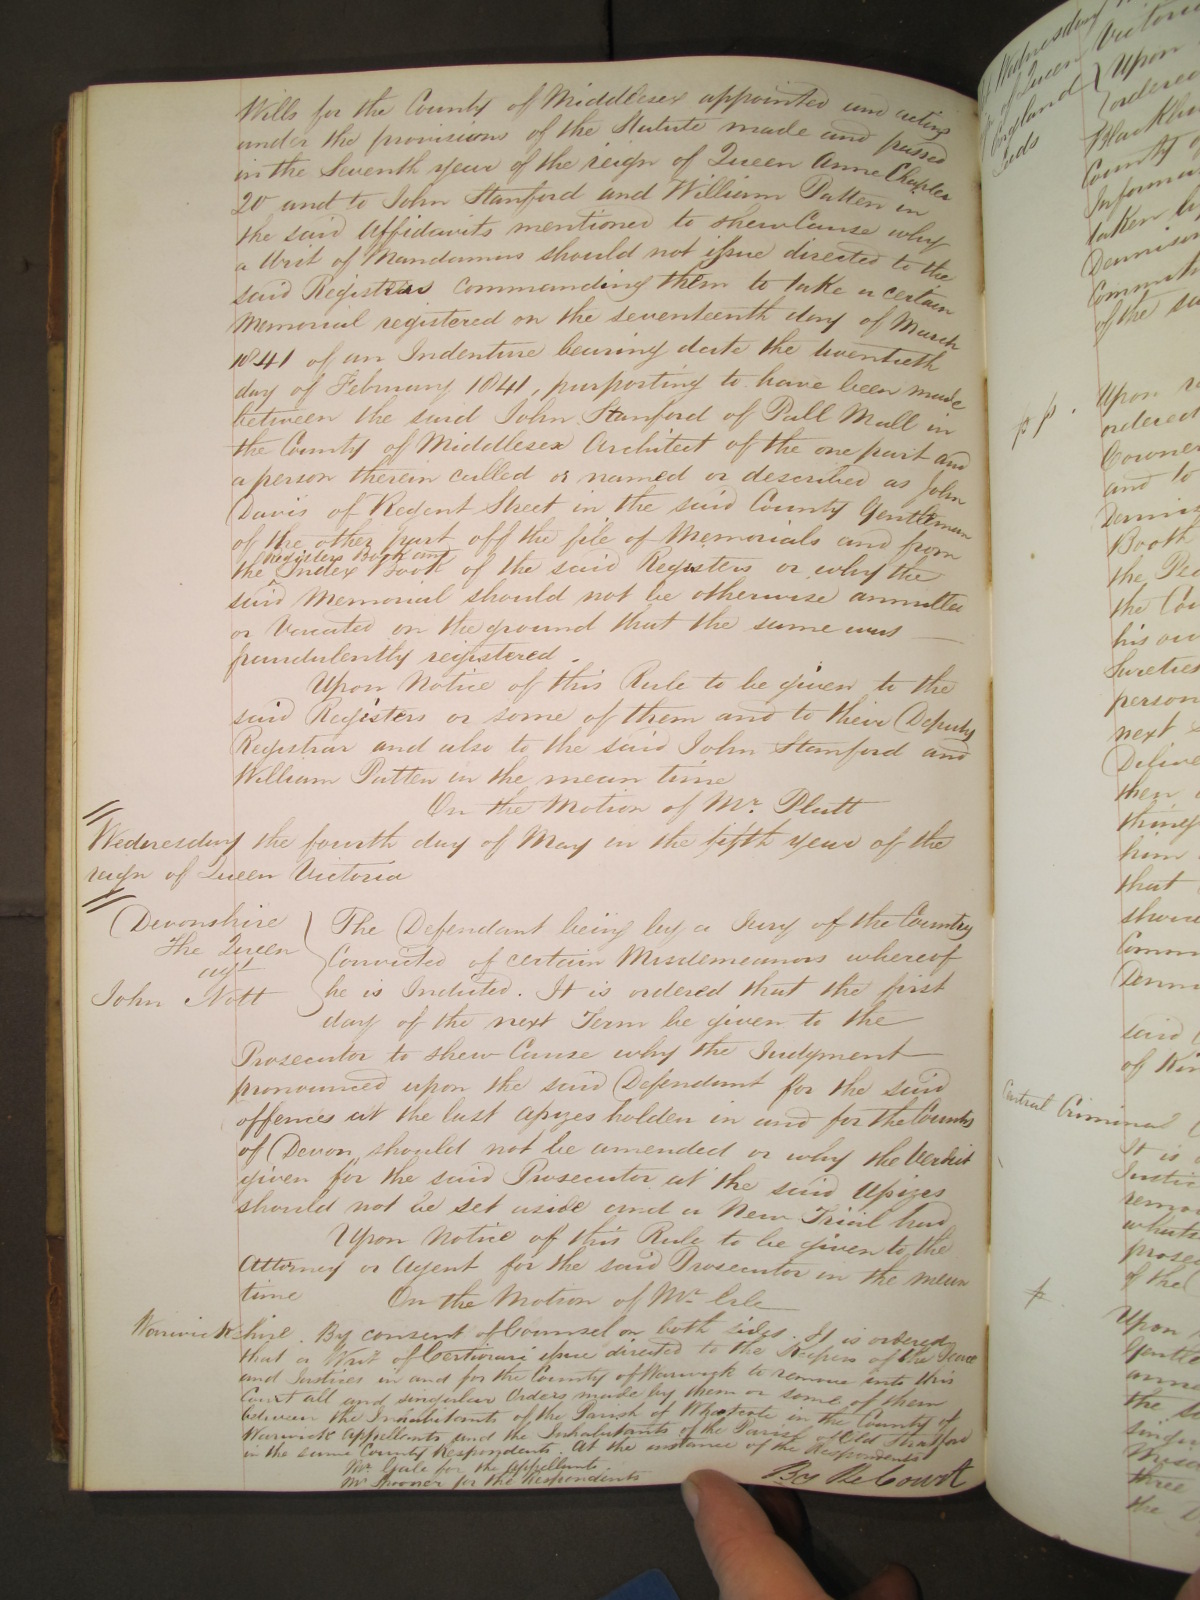 Wills for the County of Middlesex appointed and acting
under the provisions of the Statute made and passed
in the Seventh year of the reign of Queen Anne Chapter
20 and to John Stanford and William Patten in
the said Affidavits mentioned to shew Cause why
a Writ of Mandamus should not issue directed to the
said Registrars commanding them to take a certain
Memorial registered on the seventeenth day of March
1841 of an Indenture bearing date the twentieth
day of February 1841, purporting to have been made
between the said John Stanford of Pall Mall in
the County of Middlesex Architect of the one part and
a person therein called or named or described as John
Davis of Regent Street in the said County Gentleman
of the other part off the file of Memorials and from
Register Book and
the Index Book of the said Registers or why the
said Memorial should not be otherwise annulled
or Vacated on the ground that the same was
fraudulently registered.
Upon Notice of this Rule to be given to the
said Registers or some of them and to their Deputy
Registrar and also to the said John Stanford and
William Patten in the mean time
On the Motion of Mr. Platt
Wednesday the fourth day of May in the fifth year of the
reign of Queen Victoria
Devonshire
The Queen
agt
John Nott
The Defendant being by a Jury of the Country
Convicted of certain Misdemeanors whereof
he is Indicted. It is ordered that the first
day of the next Term be given to the
Prosecutor to shew Cause why the Judgment
pronounced upon the said Defendant for the said
offences at the last Assizes holden in and for the County
of Devon should not be amended or why the Verdict
given for the said Prosecutor at the said Assizes
should not be set aside and a New Trial had
Upon Notice of this Rule to be given to the
Attorney or Agent for the said Prosecutor in the mean
time On the Motion of Mr. Erle
Warwickshire. By consent of Counsel on both sides. It is ordered
that a Writ of Certiorari issue directed to the Keepers of the Peace
and Justices in and for the County of Warwick to remove into this
Court all and singular Orders made by them or some of them
between the Inhabitants of the Parish of Whatcote in the County of
Warwick Appellants and the Inhabitants of the Parish of Old Stratford
in the same County Respondents. At the instance of the Respondents
Mr. Gale for the Appellants.
Mr Spooner for the Respondents
By the Court
Wednesday
of Queen Victoria
England
Upon
ordered
County of
taken by
of the
p p.
Upon
ordered
Coroner
and to
Booth
the
his own
Sureties
person
next
then
him
that
said
Central Criminal
It is
Upon
the
three
the